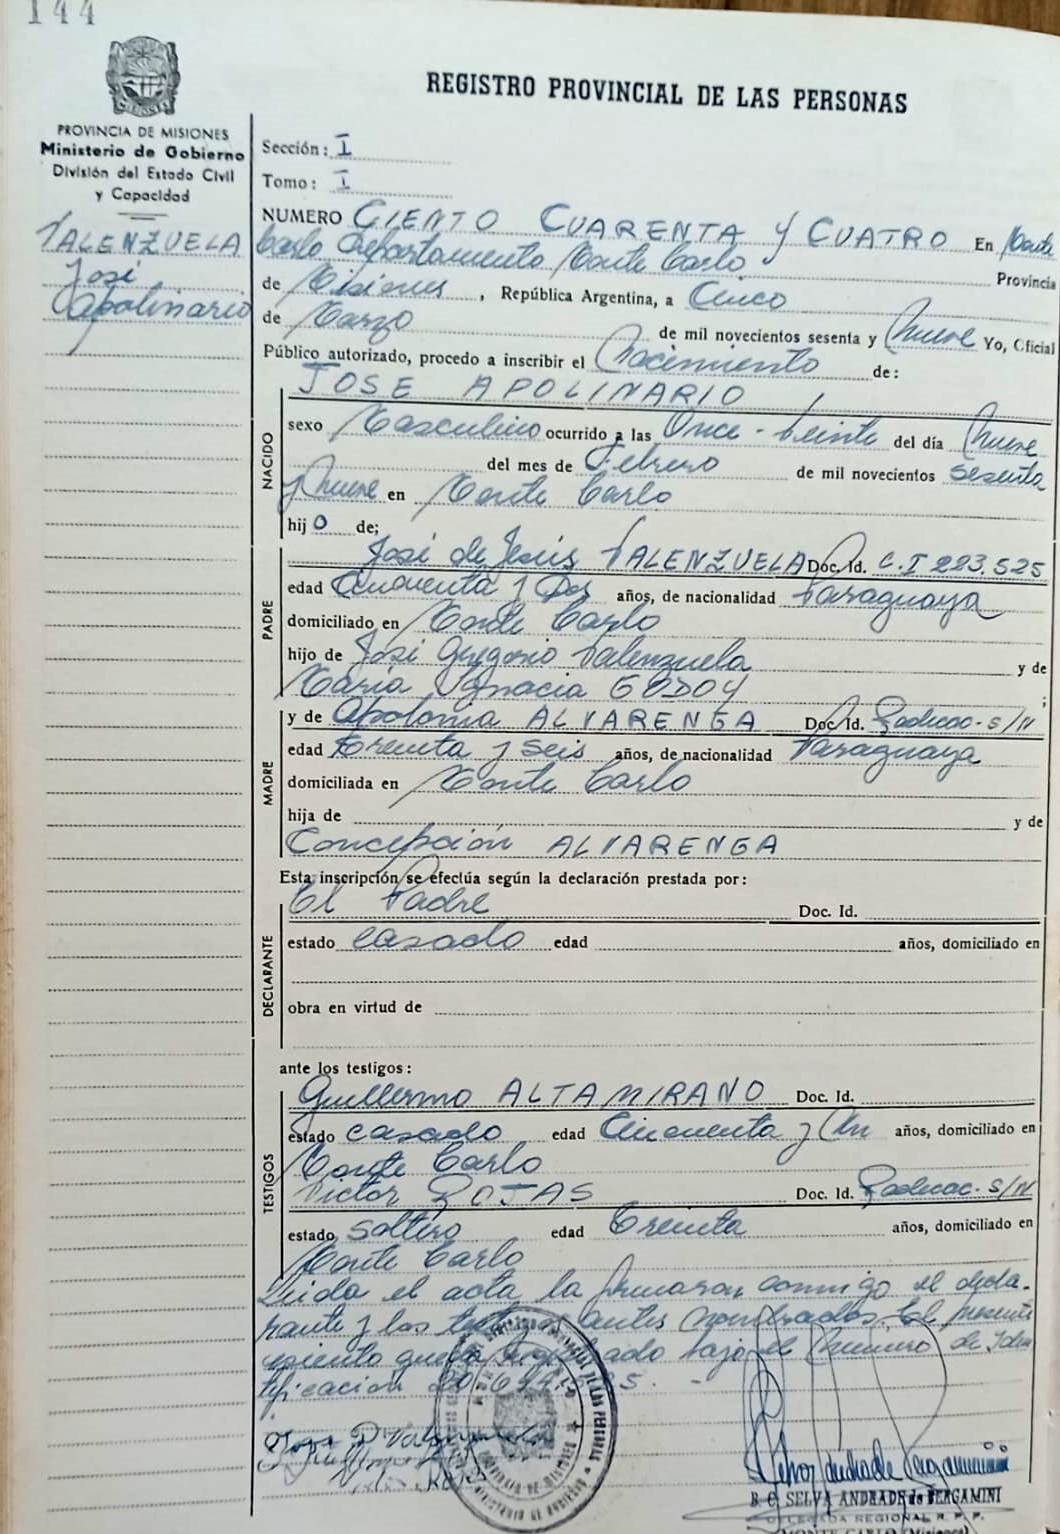 144
REGISTRO PROVINCIAL DE LAS PERSONAS
PROVINCIA DE MISIONES
Ministerio de Gobierno
División del Estado Civil
y Capacidad
VALENZUELA
José
Apolinario
Sección: I
Tomo: I
NUMERO CIENTO CUARENTA Y CUATRO En Monte
Carlo Departamento Monte Carlo Provincia
de Misiones, República Argentina, a Cinco
de Marzo de mil novecientos sesenta y Nueve Yo, Oficial
Público autorizado, procedo a inscribir el Nacimiento de:
JOSE APOLINARIO
NACIDO
sexo Masculino ocurrido a las Once-Veinte del día Nueve
del mes de Febrero de mil novecientos sesenta
y Nueve en Monte Carlo
hijo de;
PADRE
José de Jesús VALENZUELA Doc. Id. C.I 223.525
edad Cincuenta y Dos años, de nacionalidad Paraguaya
domiciliado en Monte Carlo
hijo de José Gregorio Valenzuela y de
María Ignacia GODOY ;
MADRE
y de Apolonia ALVARENGA Doc. Id. Radicac-S/N
edad treinta y seis años, de nacionalidad Paraguaya
domiciliada en Monte Carlo
hija de y de
Concepción ALVARENGA
Esta inscripción se efectúa según la declaración prestada por:
DECLARANTE
El Padre Doc. Id.
estado casado edad años, domiciliado en
obra en virtud de
ante los testigos:
TESTIGOS
Guillermo ALTAMIRANO Doc. Id.
estado casado edad Cincuenta y Un años, domiciliado en
Monte Carlo
Victor ROJAS Doc. Id. Radicac-S/N
estado soltero edad treinta años, domiciliado en
Monte Carlo
Leida el acta la firmaron conmigo el decla-
rante y los testigos antes nombrados. El presente
queda bajo el Numero de Iden
tificación
B. C. SELVA ANDRADE de BERGAMINI
DELEGADA REGIONAL R. P. P.
MONTE CARLO (Misiones)